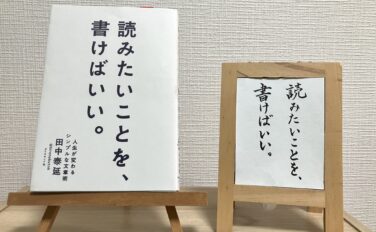 読みたいことを、
書けばいい。
人生が変わる
シンプルな文章術
田中泰延
読みたいことを、
書けばいい。